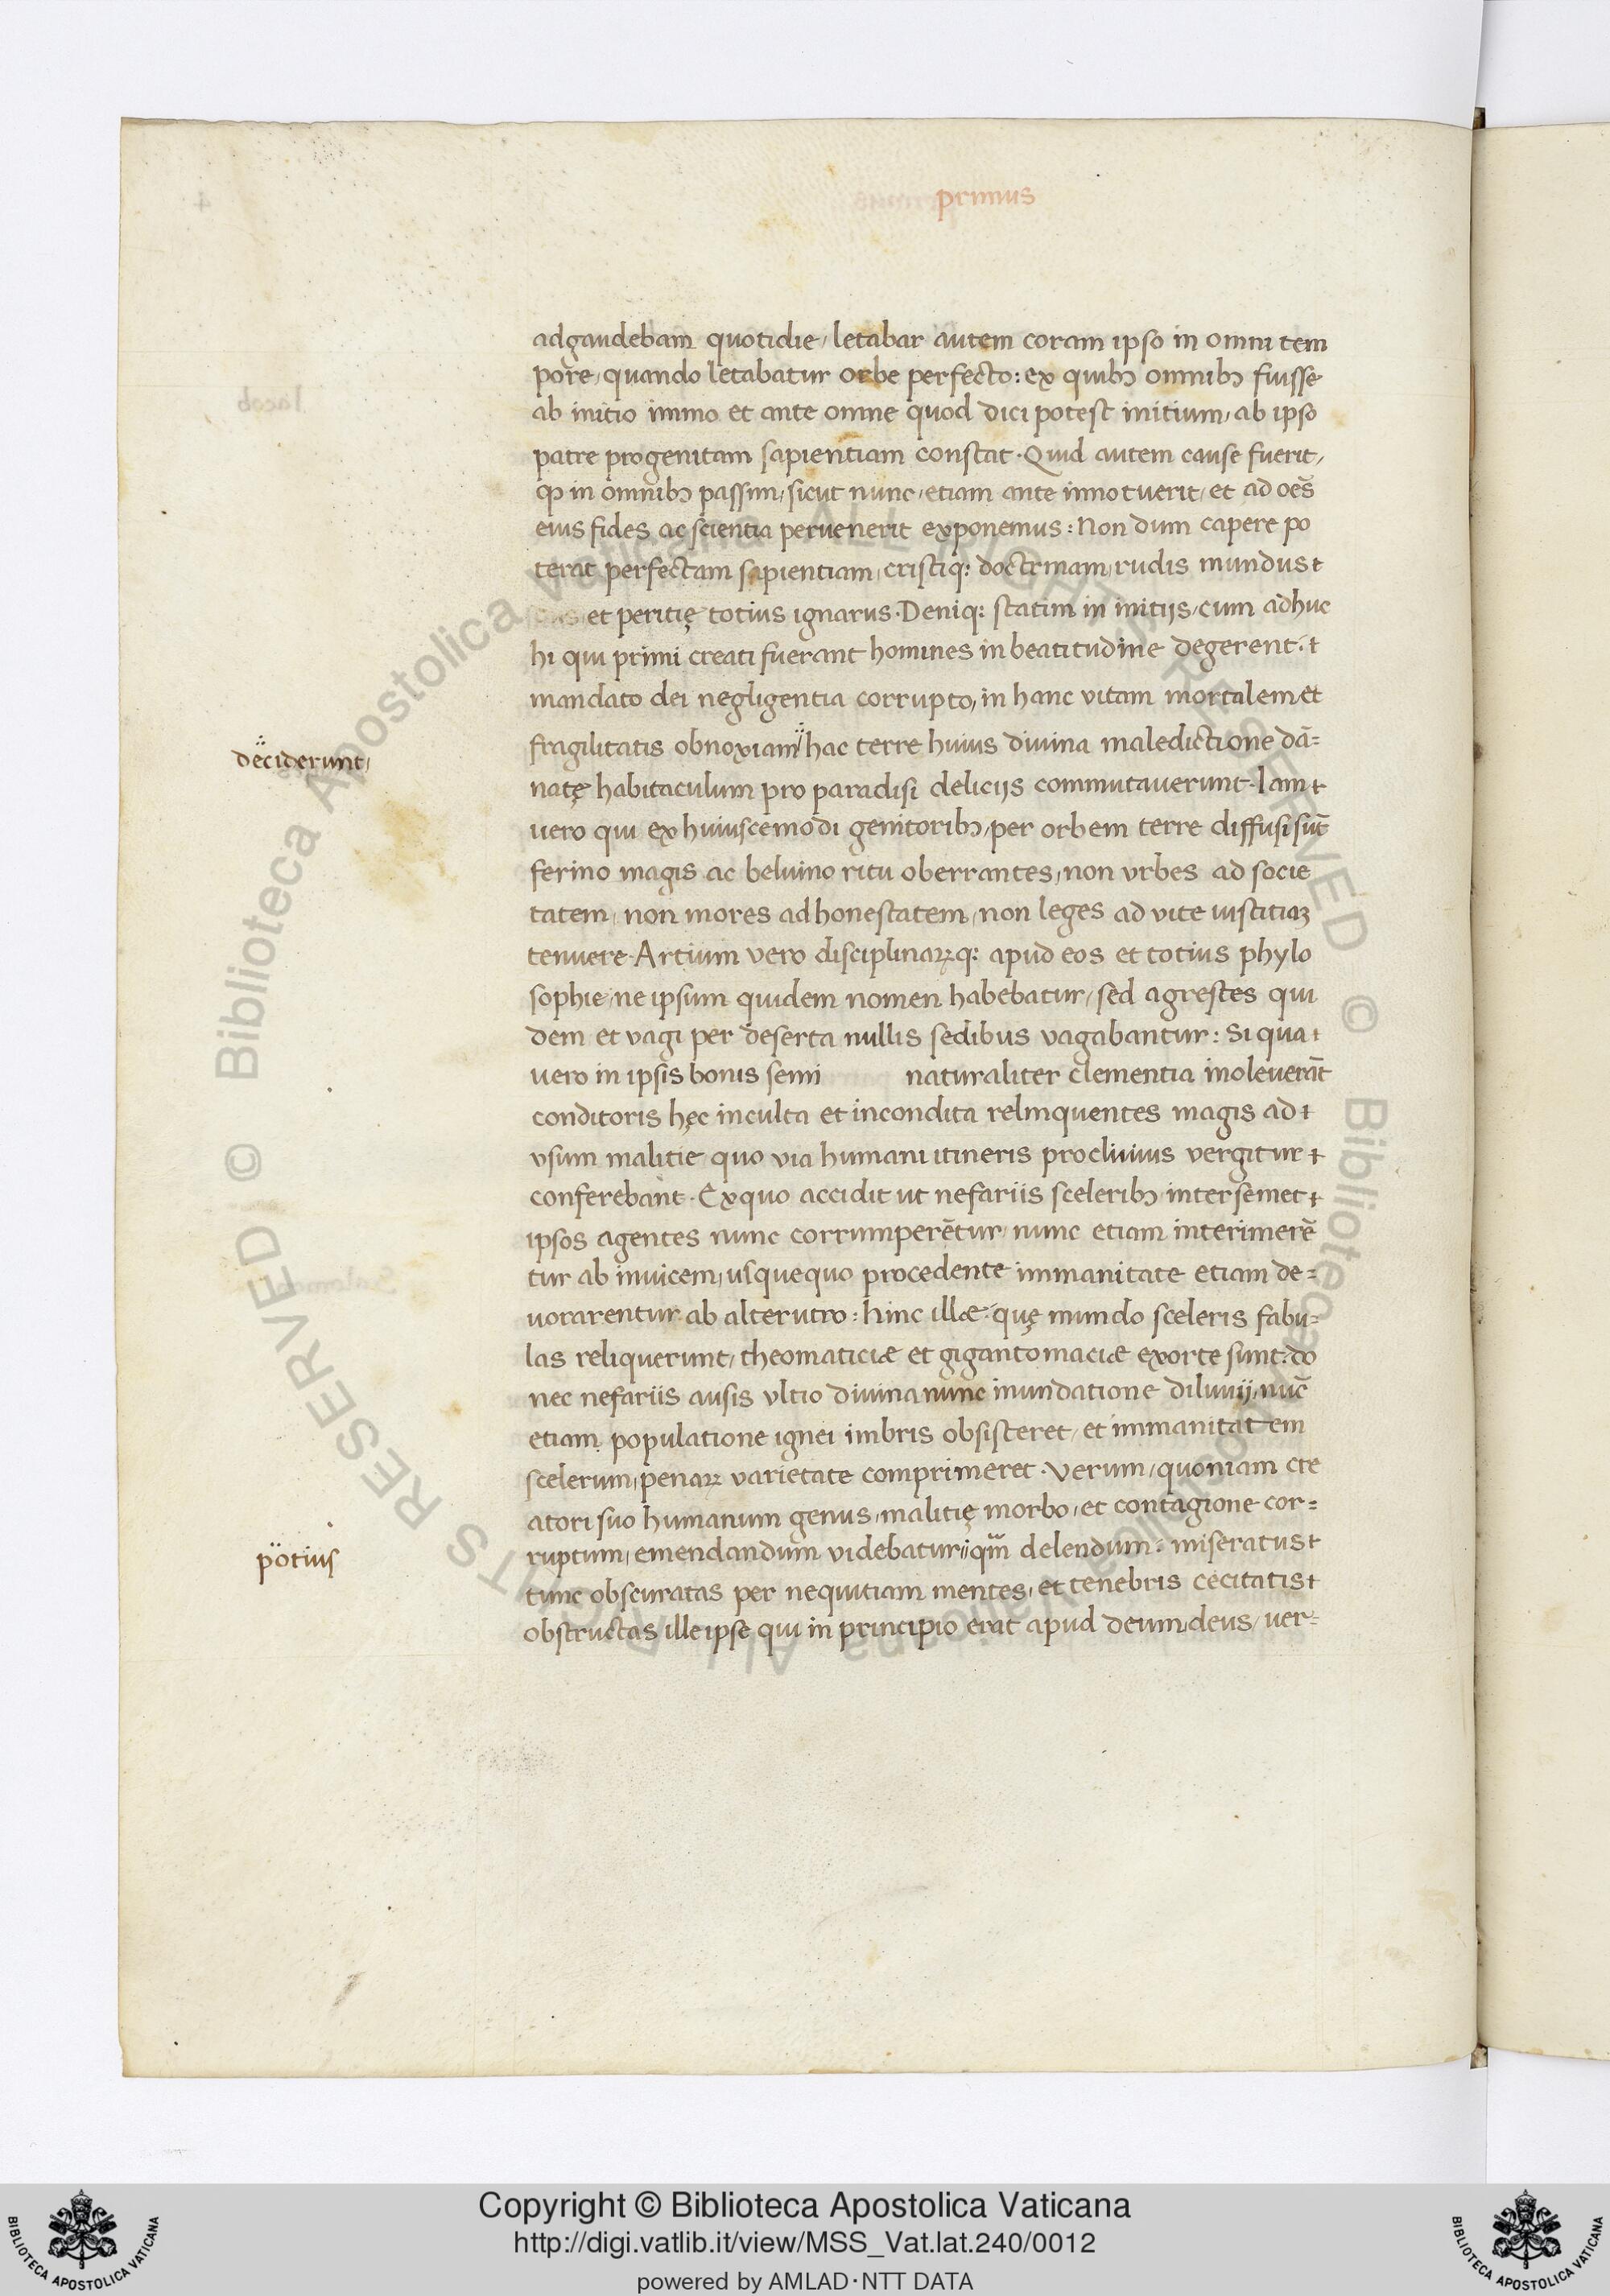 primus
adgaudebam quotidie, letabar autem coram ipso in omni tem
pore, quando letabatur orbe perfecto: ex quibꝫ omnibꝫ fuisse
ab initio immo et ante omne quod dici potest initium, ab ipso
patre progenitam sapientiam constat. Quid autem cause fuerit,
ꝙ in omnibꝫ passim, sicut nunc, etiam ante innotuerit, et ad oēs
eius fides ac scientia pervenerit exponemus: Non dum capere po
terat perfectam sapientiam, cristiq: doctrinam, rudis mundus
et peritię totius ignarus. Deniq: statim in initijs, cum adhuc
hi qui primi creati fuerant homines in beatitudine degerent,
mandato dei negligentia corrupto, in hanc vitam mortalem, et
fragilitatis obnoxiam hac terre huius divina maledictione dā=
deciderunt,
natę habitaculum pro paradisi delicijs commutaverunt. Iam
uero qui ex huiuscemodi genitoribꝫ, per orbem terre diffusi sūt
ferino magis ac beluino ritu oberrantes, non vrbes ad socie
tatem, non mores ad honestatem, non leges ad vite iustitiaꝫ
tenuere. Artium vero disciplinaꝝq: apud eos et totius phylo
sophie, ne ipsum quidem nomen habebatur, sed agrestes qui
dem et vagi per deserta nullis sedibus vagabantur: Si qua
uero in ipsis bonis semi naturaliter clementia inoleverāt
conditoris hęc inculta et incondita relinquentes magis ad
vsum malitie quo via humani itineris proclivius vergitur
conferebant. Ex quo accidit ut nefariis sceleribꝫ inter semet
ipsos agentes nunc corrumperētur, nunc etiam interimerē
tur ab invicem, usquequo procedente immanitate etiam de=
uorarentur ab alterutro: hinc illæ quę mundo sceleris fabu=
las reliquerunt, theomaticiæ et gigantomaciæ exorte sunt: do
nec nefariis ausis vltio divina nunc inundatione diluvij, nūc
etiam populatione ignei imbris obsisteret, et immanitatem
scelerum, penaꝝ varietate comprimeret. Verum, quoniam cre
atori suo humanum genus, malitię morbo, et contagione cor=
ruptum, emendandum videbatur, qm̄ delendum. miseratus
potius
tunc obscuratas per nequitiam mentes, et tenebris cecitatis
obstructas ille ipse qui in principio erat apud deum, deus, ver=
Copyright © Biblioteca Apostolica Vaticana
http://digi.vatlib.it/view/MSS_Vat.lat.240/0012
powered by AMLAD · NTT DATA
BIBLIOTECA APOSTOLICA VATICANA
BIBLIOTECA APOSTOLICA VATICANA